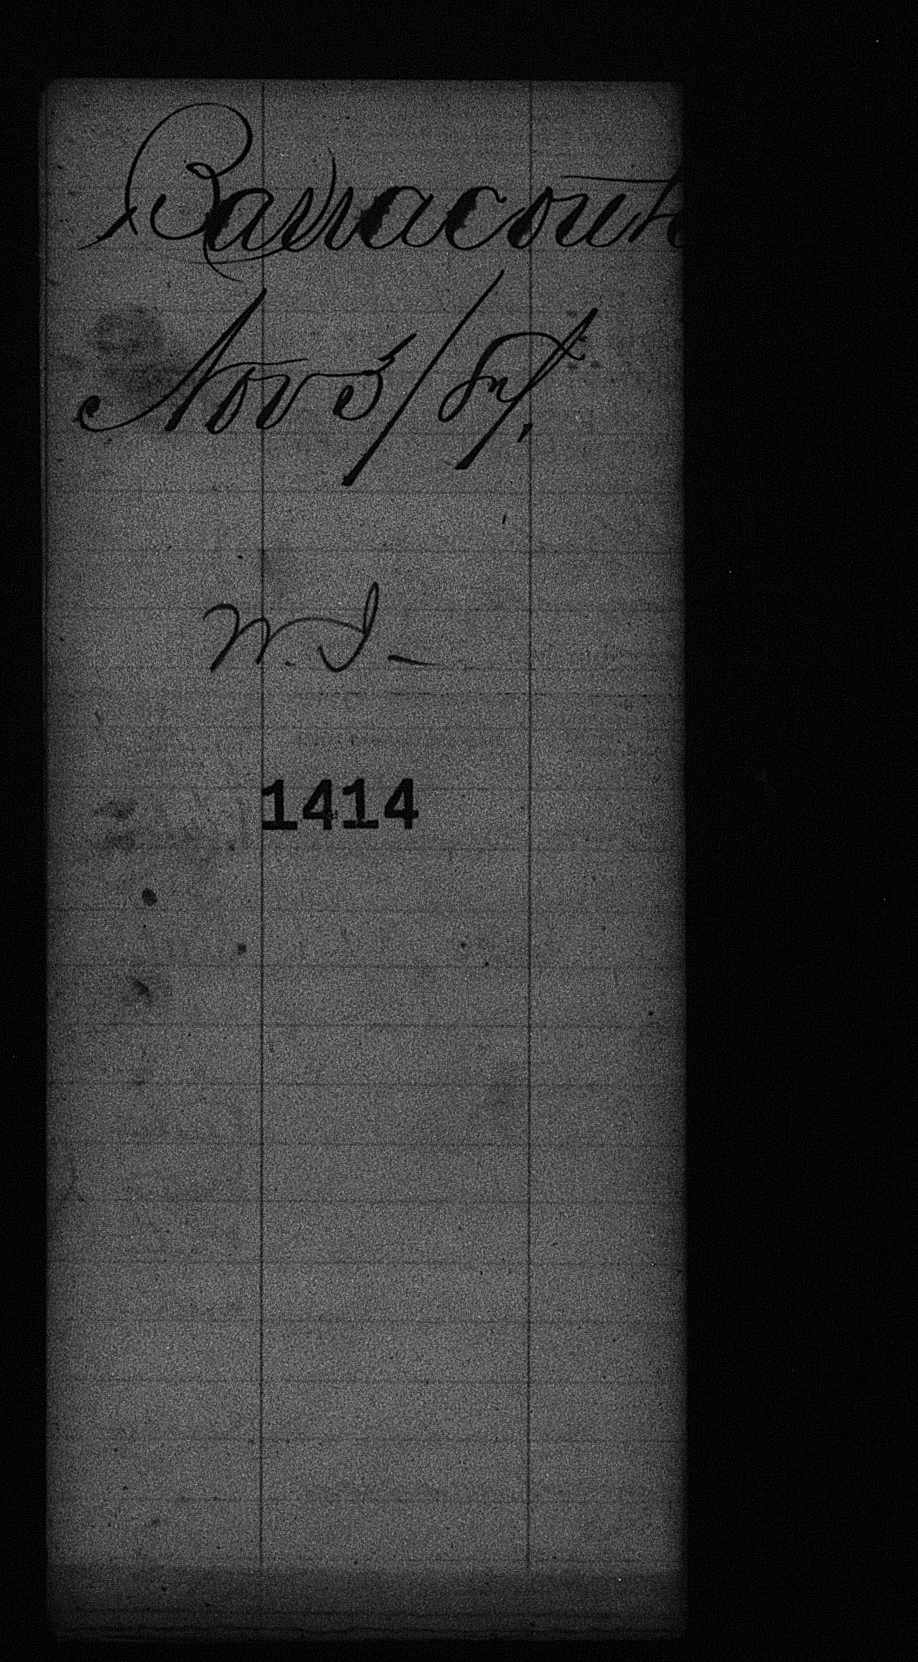 Barracouta
Nov 5/87,
W. I —
1414